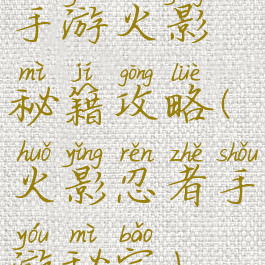 手游火影
mì jí gōng lüè
秘籍攻略(
huǒ yǐng rěn zhě shǒu
火影忍者手
yóu mì bǎo
游秘宝)